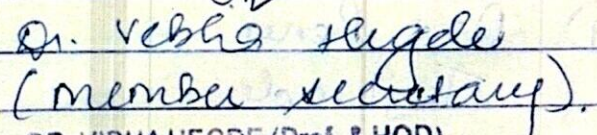 Dr. Vebha Hegde
(member secretary).
DR. VIBHA HEGDE (Prof & HOD)